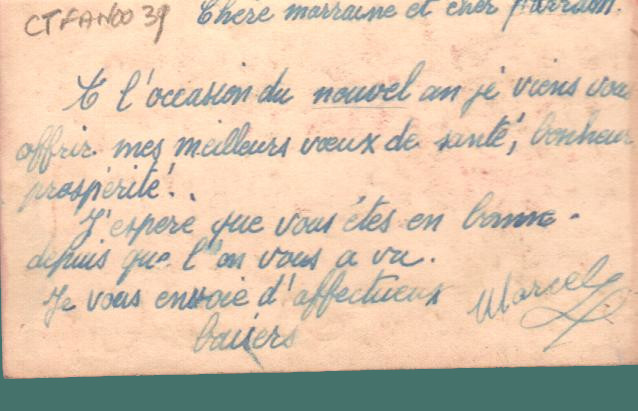 CTFAN00 39
Chère marraine et cher parrain.
A l'occasion du nouvel an je viens vous
offrir mes meilleurs vœux de santé, bonheur
prospérité..
J'espere que vous êtes en bonne -
depuis que l'on vous a vu.
Je vous envoie d'affectueux
baisers
Marcel